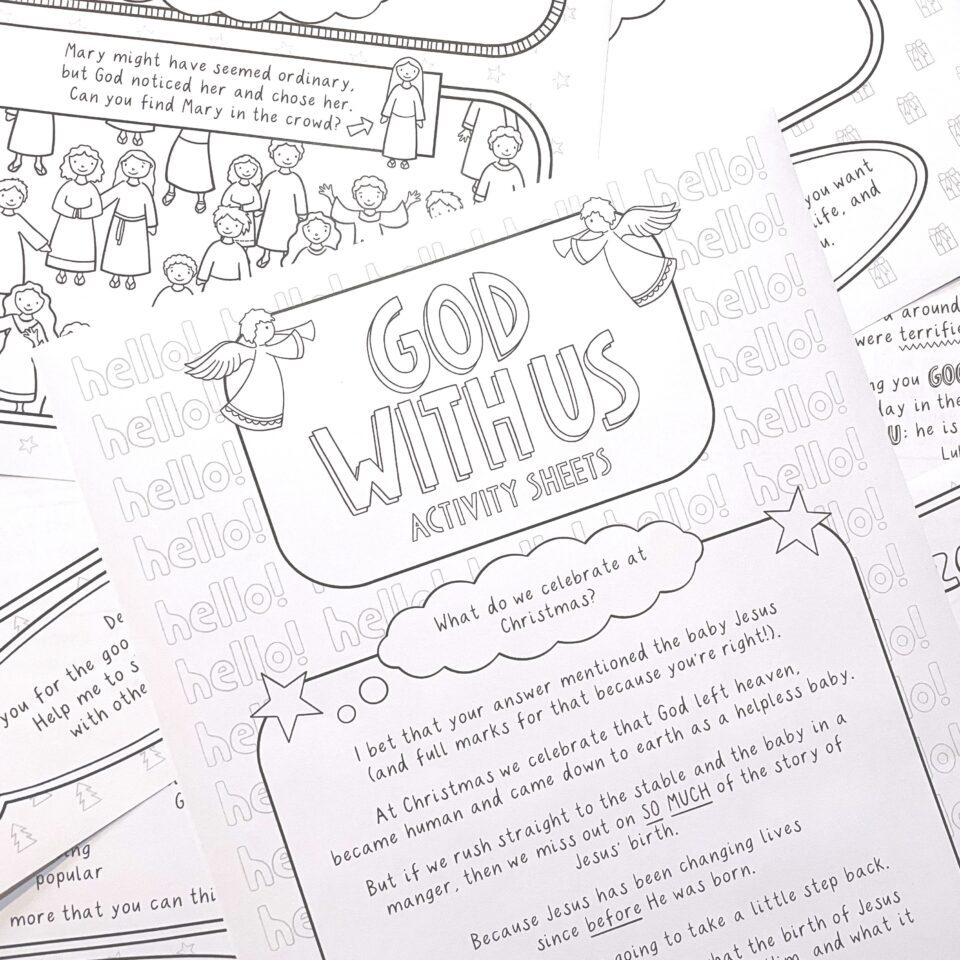 Mary might have seemed ordinary,
but God noticed her and chose her.
Can you find Mary in the crowd?
hello! hello!
hello!
hello! hello!
hello! hello!
hello! hello!
hello! hello!
hello!
hello!
hello!
hello!
GOD
WITH US
ACTIVITY SHEETS
What do we celebrate at
Christmas?
I bet that your answer mentioned the baby Jesus
(and full marks for that because you're right!).
At Christmas we celebrate that God left heaven,
became human and came down to earth as a helpless baby.
But if we rush straight to the stable and the baby in a
manger, then we miss out on SO MUCH of the story of
Jesus' birth.
Because Jesus has been changing lives
since before He was born.
going to take a little step back.
the birth of Jesus
and what it
you want
life, and
around
were terrified
you
day in the
: he is
you for the
Help me to
with
popular
more that you can